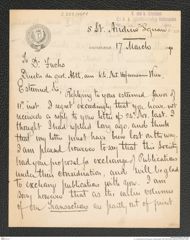 5 St. Andrew Square
17 March
To Dr. Fuchs
Estimed Sir, Replying to your esteemed favor of
inst. I regret exceedingly that you have not
received a reply to your letter of 25 Nov. last. I
thought I had replied long ago and think
that my letter must have been lost on the way.
I am pleased however to say that this Society
had your proposal for exchange of Publications
under their consideration, and will be glad
to exchange publications with you. I am
sorry however that as the older volumes
of the Transactions are partly out of print